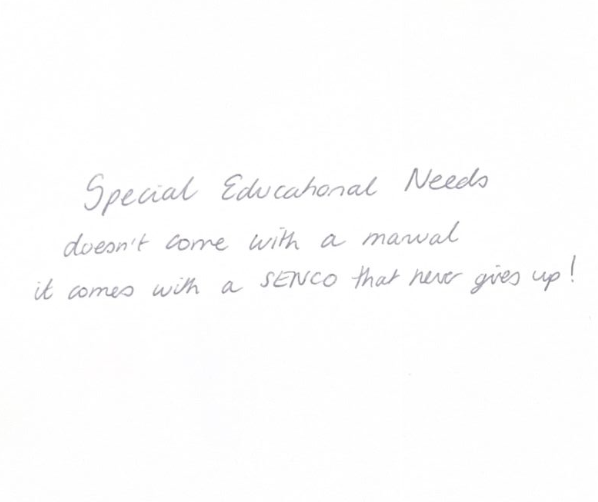 Special Educational Needs
doesn't come with a manual
it comes with a SENCO that never gives up!